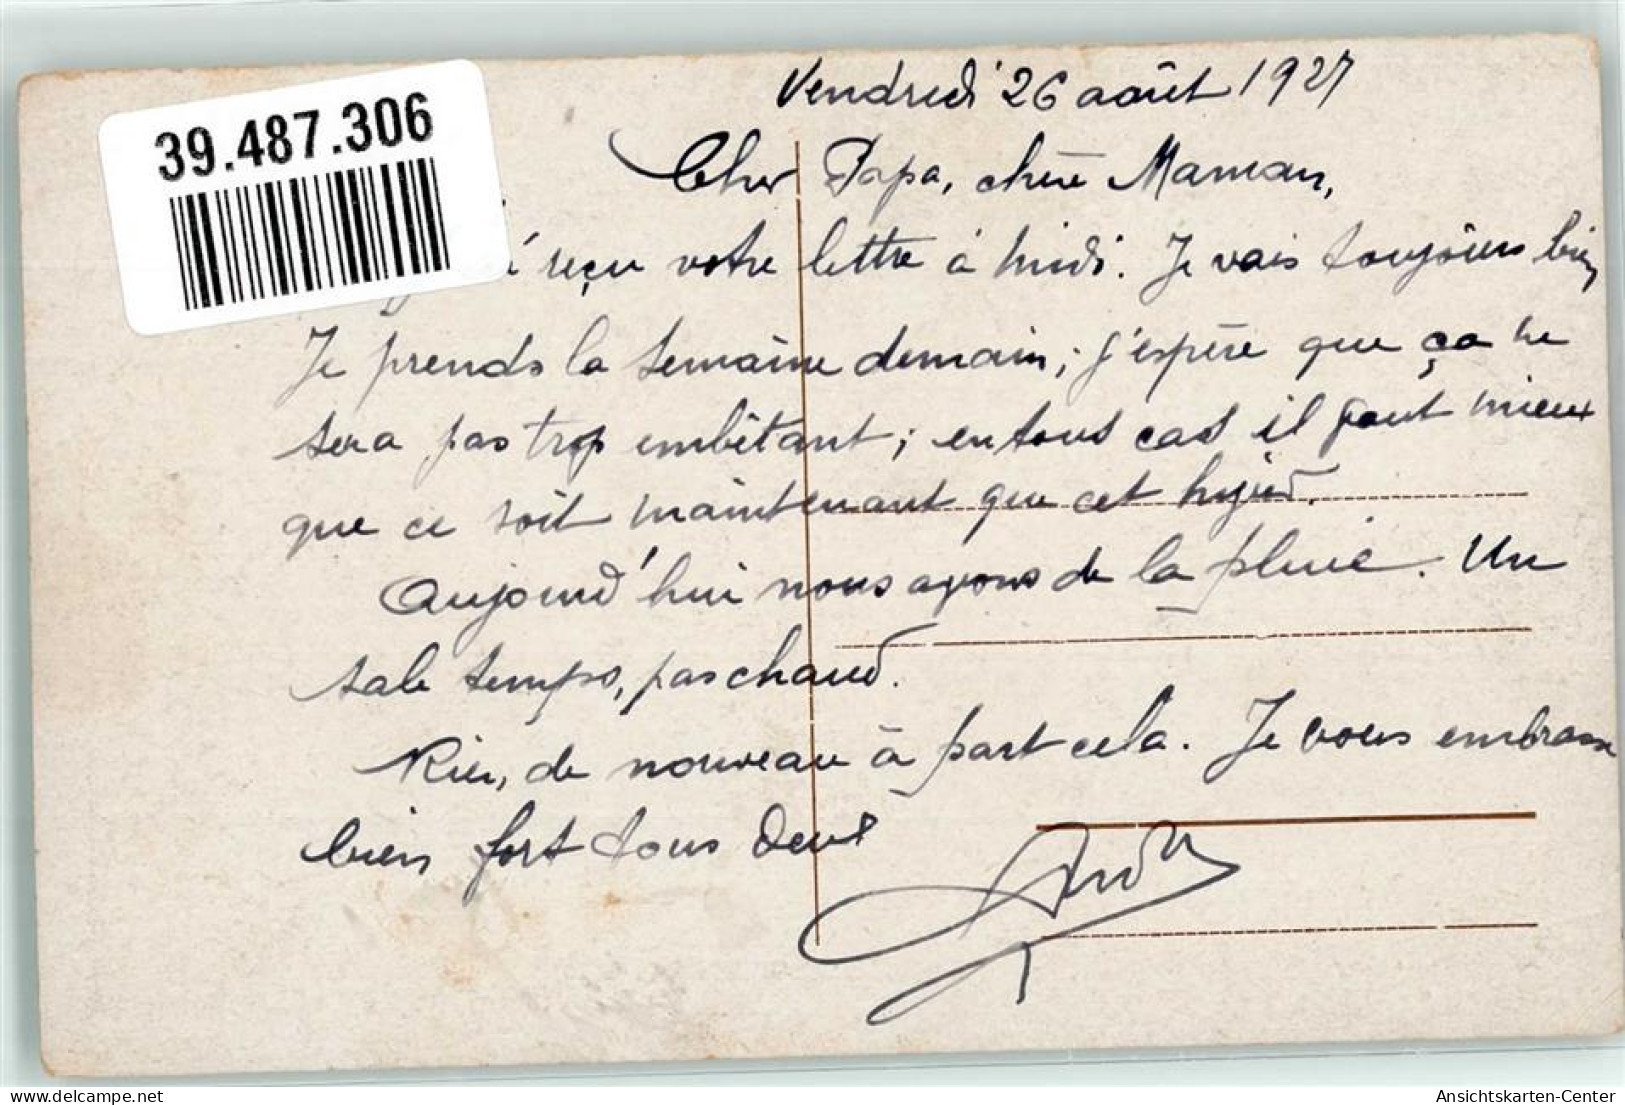 39.487.306
Vendredi 26 août 1927
Cher Papa, chère Maman,
reçu votre lettre à midi. Je vais toujours bien,
Je prends la semaine demain; j'espère que ça ne
sera pas trop embêtant; en tous cas il faut mieux
que ce soit maintenant que cet hiver.
Aujourd'hui nous avons de la pluie. Un
sale temps, pas chaud.
Rien, de nouveau à part cela. Je vous embrasse
bien fort tous deux
André
delcampe.net
Ansichtskarten-Center